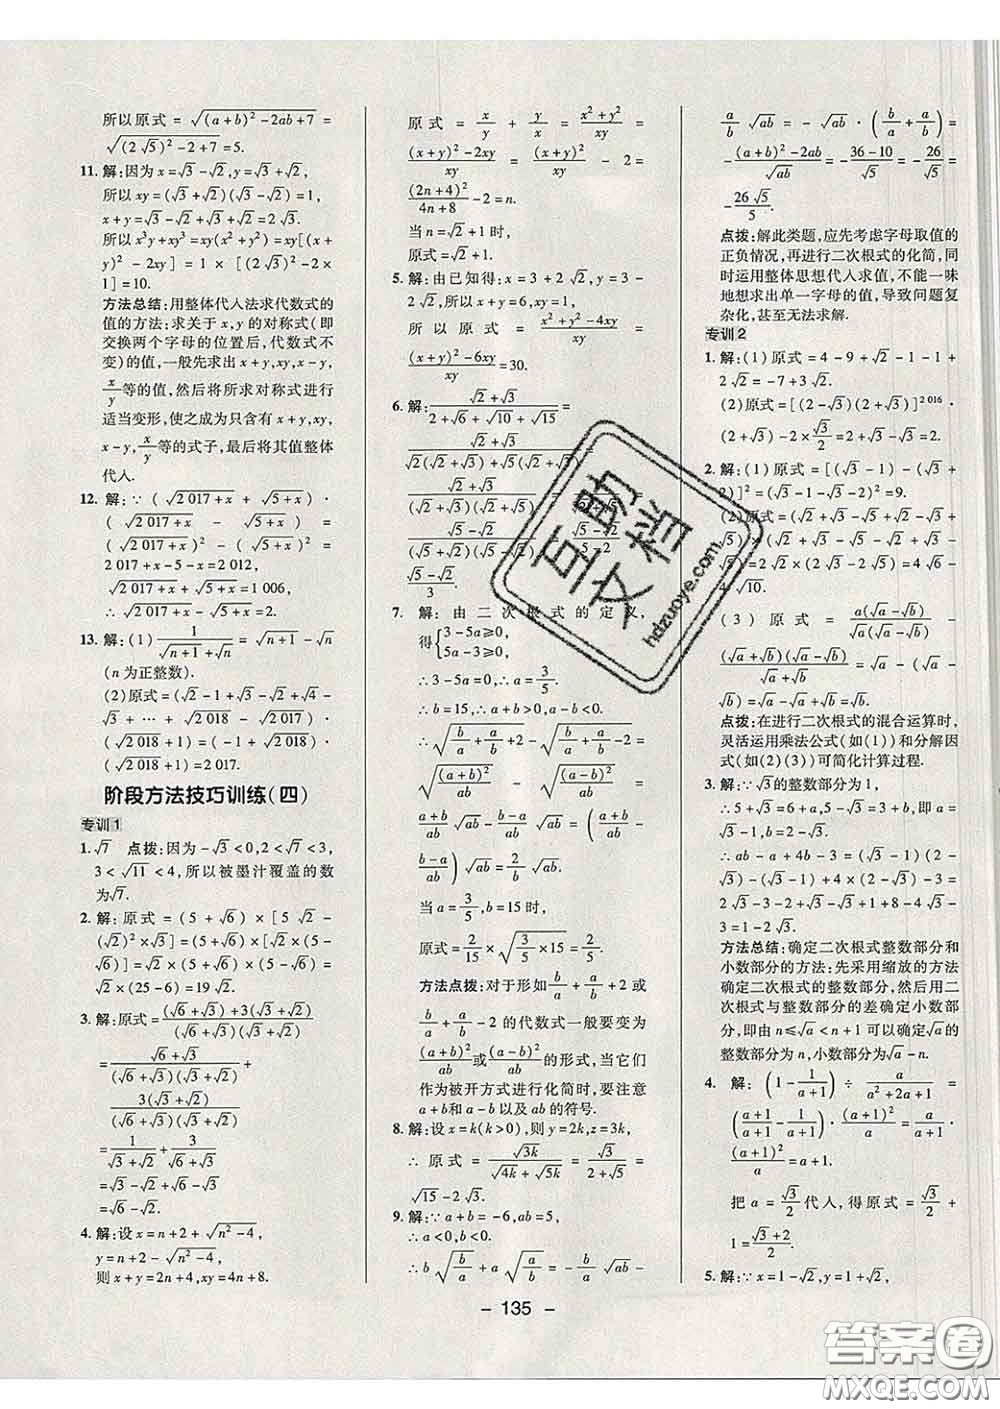 所以原式 = √((a+b)²-2ab+7) =
√((2√5)²-2+7) = 5.
11. 解:因为 x=√3-√2,y=√3+√2,
所以 xy=(√3+√2)(√3-√2)=1,
x+y=√3-√2+√3+√2=2√3.
所以 x³y+xy³=xy(x²+y²)=xy[(x+
y)²-2xy]=1×[(2√3)²-2×
1]=10.
方法总结:用整体代入法求代数式的
值的方法:求关于 x,y 的对称式(即
交换两个字母的位置后,代数式不
变)的值,一般先求出 x+y,xy,x-y,
x/y等的值,然后将所求对称式进行
适当变形,使之成为只含有 x+y,xy,
x-y,x/y等的式子,最后将其值整体
代入.
12. 解:∵(√(2 017+x) + √(5+x))·
(√(2 017+x) - √(5+x)) =
(√(2 017+x))² - (√(5+x))² =
2 017+x-5-x=2 012,
√(2 017+x)+√(5+x)=1 006,
∴√(2 017+x)-√(5+x)=2.
13. 解:(1) 1/(√(n+1)+√n) = √(n+1)-√n
(n 为正整数).
(2)原式=(√2-1+√3-√2+√4-√3
+ … + √(2 018) - √(2 017))·
(√(2 018)+1)=(-1+√(2 018))·
(√(2 018)+1)=2 017.
阶段方法技巧训练(四)
专训1
1. √7 点拨:因为-√3<0,2<√7<3,
3<√11<4,所以被墨汁覆盖的数
为√7.
2. 解:原式=(5+√6)×[5√2-
(√2)²×√3]=(5+√6)×[√2×
(5-√2×√3)]=(5+√6)(5-√6)×
√2=√2×(25-6)=19√2.
3. 解:原式=((√6+√3)+3(√3+√2))/((√6+√3)(√3+√2))
=(√6+√3)/((√6+√3)(√3+√2))+
3(√3+√2)/((√6+√3)(√3+√2))
=1/(√3+√2)+3/(√6+√3)
=√3-√2+√6-√3
=√6-√2.
4. 解:设 x=n+2+√(n²-4),
y=n+2-√(n²-4),
则 x+y=2n+4,xy=4n+8.
原式 = x/y + y/x = (x²+y²)/xy =
((x+y)²-2xy)/xy = (x+y)²/xy - 2 =
(2n+4)²/(4n+8)-2=n.
当 n=√2+1时,
原式=√2+1.
5. 解:由已知得:x=3+2√2,y=3-
2√2,所以 x+y=6,xy=1,
所以原式 = (x²+y²-4xy)/xy =
((x+y)²-6xy)/xy=30.
6. 解:(√2+√3)/(2+√6+√10+√15)=
(√2+√3)/(√2(√2+√3)+√5(√2+√3))
(√2+√3)/((√2+√3)(√2+√5)
(√5-√2)/((√5+√2)(√5-√2
(√5-√2)/3.
7. 解:由二次根式的定义,
得{3-5a≥0,
5a-3≥0,
∴3-5a=0,∴a=3/5.
∴b=15,∴a+b>0,a-b<0.
∴√(b/a+a/b+2)-√(b/a+a/b-2)=
√((a+b)²/ab) - √((a-b)²/ab) =
(a+b)/ab √ab - (b-a)/ab √ab = ((a+b)/ab -
(b-a)/ab)√ab=2/b √ab.
当 a=3/5,b=15时,
原式=2/15×√(3/5×15)=2/5.
方法点拨:对于形如b/a+a/b+2或
b/a+a/b-2的代数式一般要变为
(a+b)²/ab或(a-b)²/ab的形式,当它们
作为被开方式进行化简时,要注意
a+b和 a-b以及 ab的符号.
8. 解:设 x=k(k>0),则 y=2k,z=3k,
∴原式=√3k/(√4k+√5k)=√3/(2+√5)=
√15-2√3.
9. 解:∵a+b=-6,ab=5,
∴a<0,b<0.
∴b√(b/a)+a√(a/b)=-b/a √ab-
a/b √ab = -√ab·(b/a+a/b) =
-((a+b)²-2ab)/√ab=-(36-10)/√5=-26/√5=
-26√5/5.
点拨:解此类题,应先考虑字母取值的
正负情况,再进行二次根式的化简,同
时运用整体思想代入求值,不能一味
地想求出单一字母的值,导致问题复
杂化,甚至无法求解.
专训2
1. 解:(1)原式=4-9+√2-1-1+
2√2=-7+3√2.
(2)原式=[(2-√3)(2+√3)]^2 016·
(2+√3)-2×√3/2=2+√3-√3=2.
2. 解:(1)原式=[(√3-1)-(√3+
2)]²=(√3-1-√3-2)²=9.
√10.
(3)原式=a(√a-√b)/(√a(√a-√b))-
(√a+√b)(√a-√b)/(√a+√b)=√a-(√a-
√b)=√a-√a+√b=√b.
点拨:在进行二次根式的混合运算时,
灵活运用乘法公式(如(1))和分解因
式(如(2)(3))可简化计算过程.
3. 解:∵√3的整数部分为1,
∴5+√3=6+a,5-√3=3+b,即 a=
√3-1,b=2-√3.
∴ab-a+4b-3=(√3-1)(2-
√3)-(√3-1)+4×(2-√3)-3=
2√3-3-2+√3-√3+1+8-4√3-
3=1-2√3.
方法总结:确定二次根式整数部分和
小数部分的方法:先采用缩放的方法
确定二次根式的整数部分,然后用二
次根式与整数部分的差确定小数部
分,即由 n≤√a<n+1可以确定√a的
整数部分为 n,小数部分为√a-n.
4. 解:(1-1/(a+1))÷a/(a²+2a+1)=
((a+1)/(a+1)-1/(a+1))·(a+1)²/a=a/(a+1)·
(a+1)²/a=a+1.
把 a=√3/2代入,得原式=√3/2+
1=(√3+2)/2.
5. 解:∵x=1-√2,y=1+√2,
- 135 -
互助文档
hdzuoye.com
答案卷
MXQE.COM